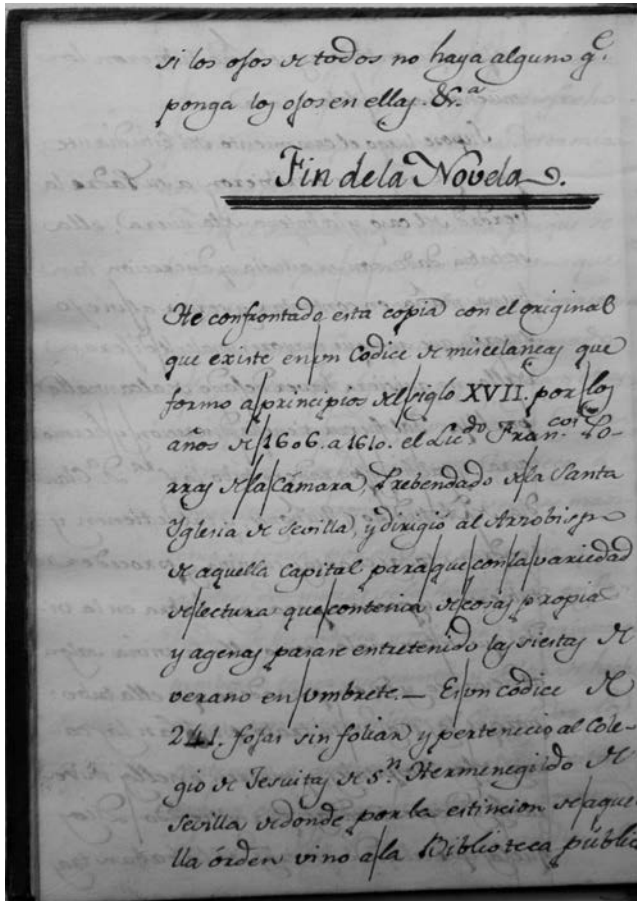 si los ojos de todos no haya alguno q.e
ponga los ojos en ellas. &.a
Fin dela Novela.
He confrontado esta copia con el original
que existe en un Codice de miscelaneas que
formo a principios del siglo XVII. por los
años de 1606. a 1610. el Lic.do Fran.co Po-
rras de la Cámara, Prebendado de la Santa
Iglesia de Sevilla, y dirigio al Arzobispo
de aquella Capital para que con la variedad
de lectura que contenia de cosas propia
y agenas parase entretenido las siestas de
verano en Umbrete. — Es un códice de
241. fojas sin foliar y pertenecio al Cole-
gio de Jesuitas de S.n Hermenegildo de
Sevilla de donde por la estincion de aque
lla órden vino a la Biblioteca públic